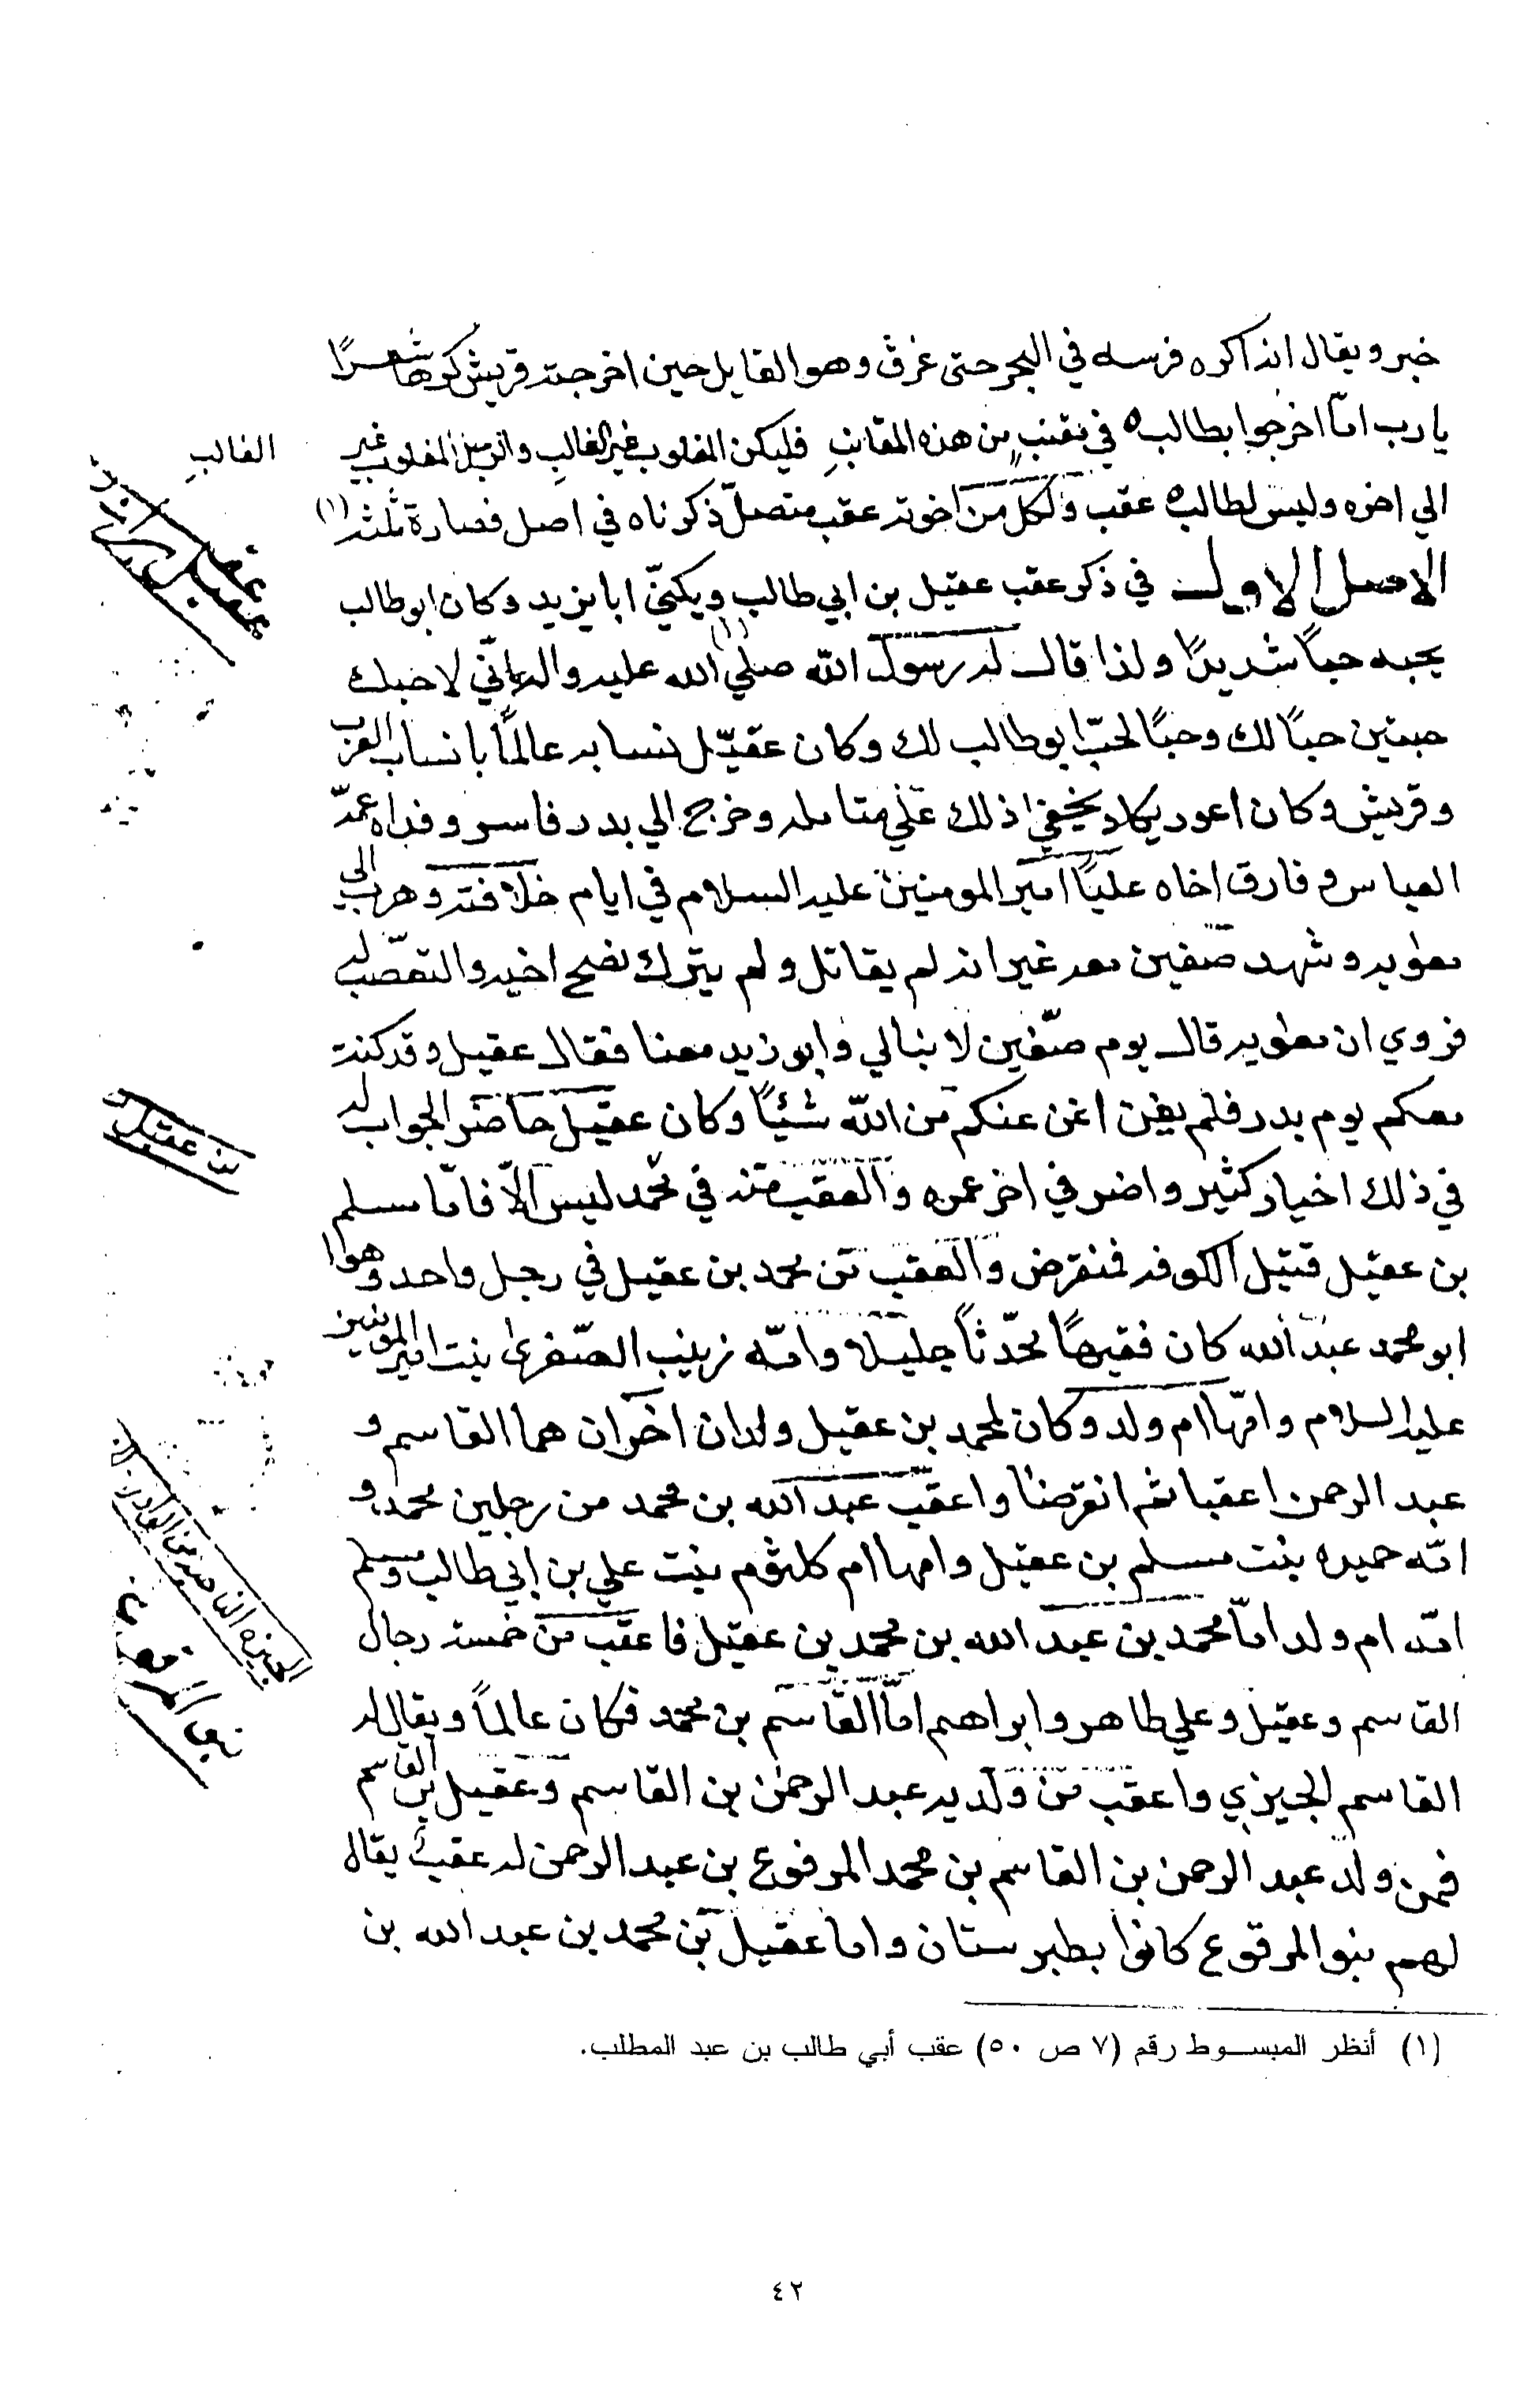 خبر ويقال انه اكره فرسه في البحر حتى غرق وهو القايل حين اخرجته قريش كرها شعرًا
يا رب امّا اخرجوا بطالب ه في مقنب من هذه المقانب فليكن المغلوب غير الغالب والرجل المغلوب غير
الغالب
الي اخره وليس لطالب ه عقب ولكلّ من اخوته عقب متصلّ ذكرناه في اصل فصارة ثلثه (١)
الاصل الاول في ذكر عقب عقيل بن ابي طالب ويكنيّ ابا يزيد وكان ابو طالب
يحبه حباً شديدًا ولذا قال له رسول الله صلي الله عليه واله انّي لاحبك
(١)
حبتين حبًا لك وحبًا لحبّ ابو طالب لك وكان عقيل نسابه عالمًا بانساب العرب
وقريش وكان اعور يكاد يخفي ذلك علي متامله وخرج الي بدر فاسر وفداه عمّه
العباس وفارق اخاه عليًا امير المومنين عليه السلام في ايام خلافته وهرب الى
معويه وشهد صفين معه غير انه لم يقاتل ولم يترك نصح اخيه والتعصّب له
فروي ان معويه قال يوم صفّين لا نبالي وابو زيد معنا فقال عقيل وقد كنت
معكم يوم بدر فلم يغن اغن عنكم من الله شئيًا وكان عقيل حاضر الجواب له
في ذلك اخبار كثير واضر في اخر عمره والعقب منه في محمد ليس الاّ فامّا مسلم
بن عقيل
بن عقيل قتيل الكوفه فنقرض والعقب من محمد بن عقيل في رجل واحد وهوا
ابو محمد عبد الله كان فقيهًا محدّثاً جليلا وامّه زينب الصّغرى بنت امير المومنين
عليه السلام وامّها ام ولد وكان لمحمد بن عقيل ولدان اخران هما القاسم و
عبد الرحمن اعقبا ثم انقرضا واعقب عبد الله بن محمد من رجلين محمد و
امّه حميده بنت مسلم بن عقيل وامها ام كلثوم بنت علي بن ابي طالب ومسلم
امّه ام ولد امّا محمد بن عبد الله بن محمد بن عقيل فاعقب من خمسة رجال
القاسم وعقيل وعلي طاهر وابراهيم امّا القاسم بن محمد فكان عالماً ويقال له
القاسم الجيزي واعقب من ولديه عبد الرحمن بن القاسم وعقيل بن القاسم
بنو المرفوع
فمن ولد عبد الرحمن بن القاسم بن محمد المرفوع بن عبد الرحمن له عقبٌ يقال
لهم بنو المرقوع كانوا بطبرستان واما عقيل بن محمد بن عبد الله بن
(١) أنظر المبسوط رقم (٧ ص ٥٠) عقب أبي طالب بن عبد المطلب.
٤٢